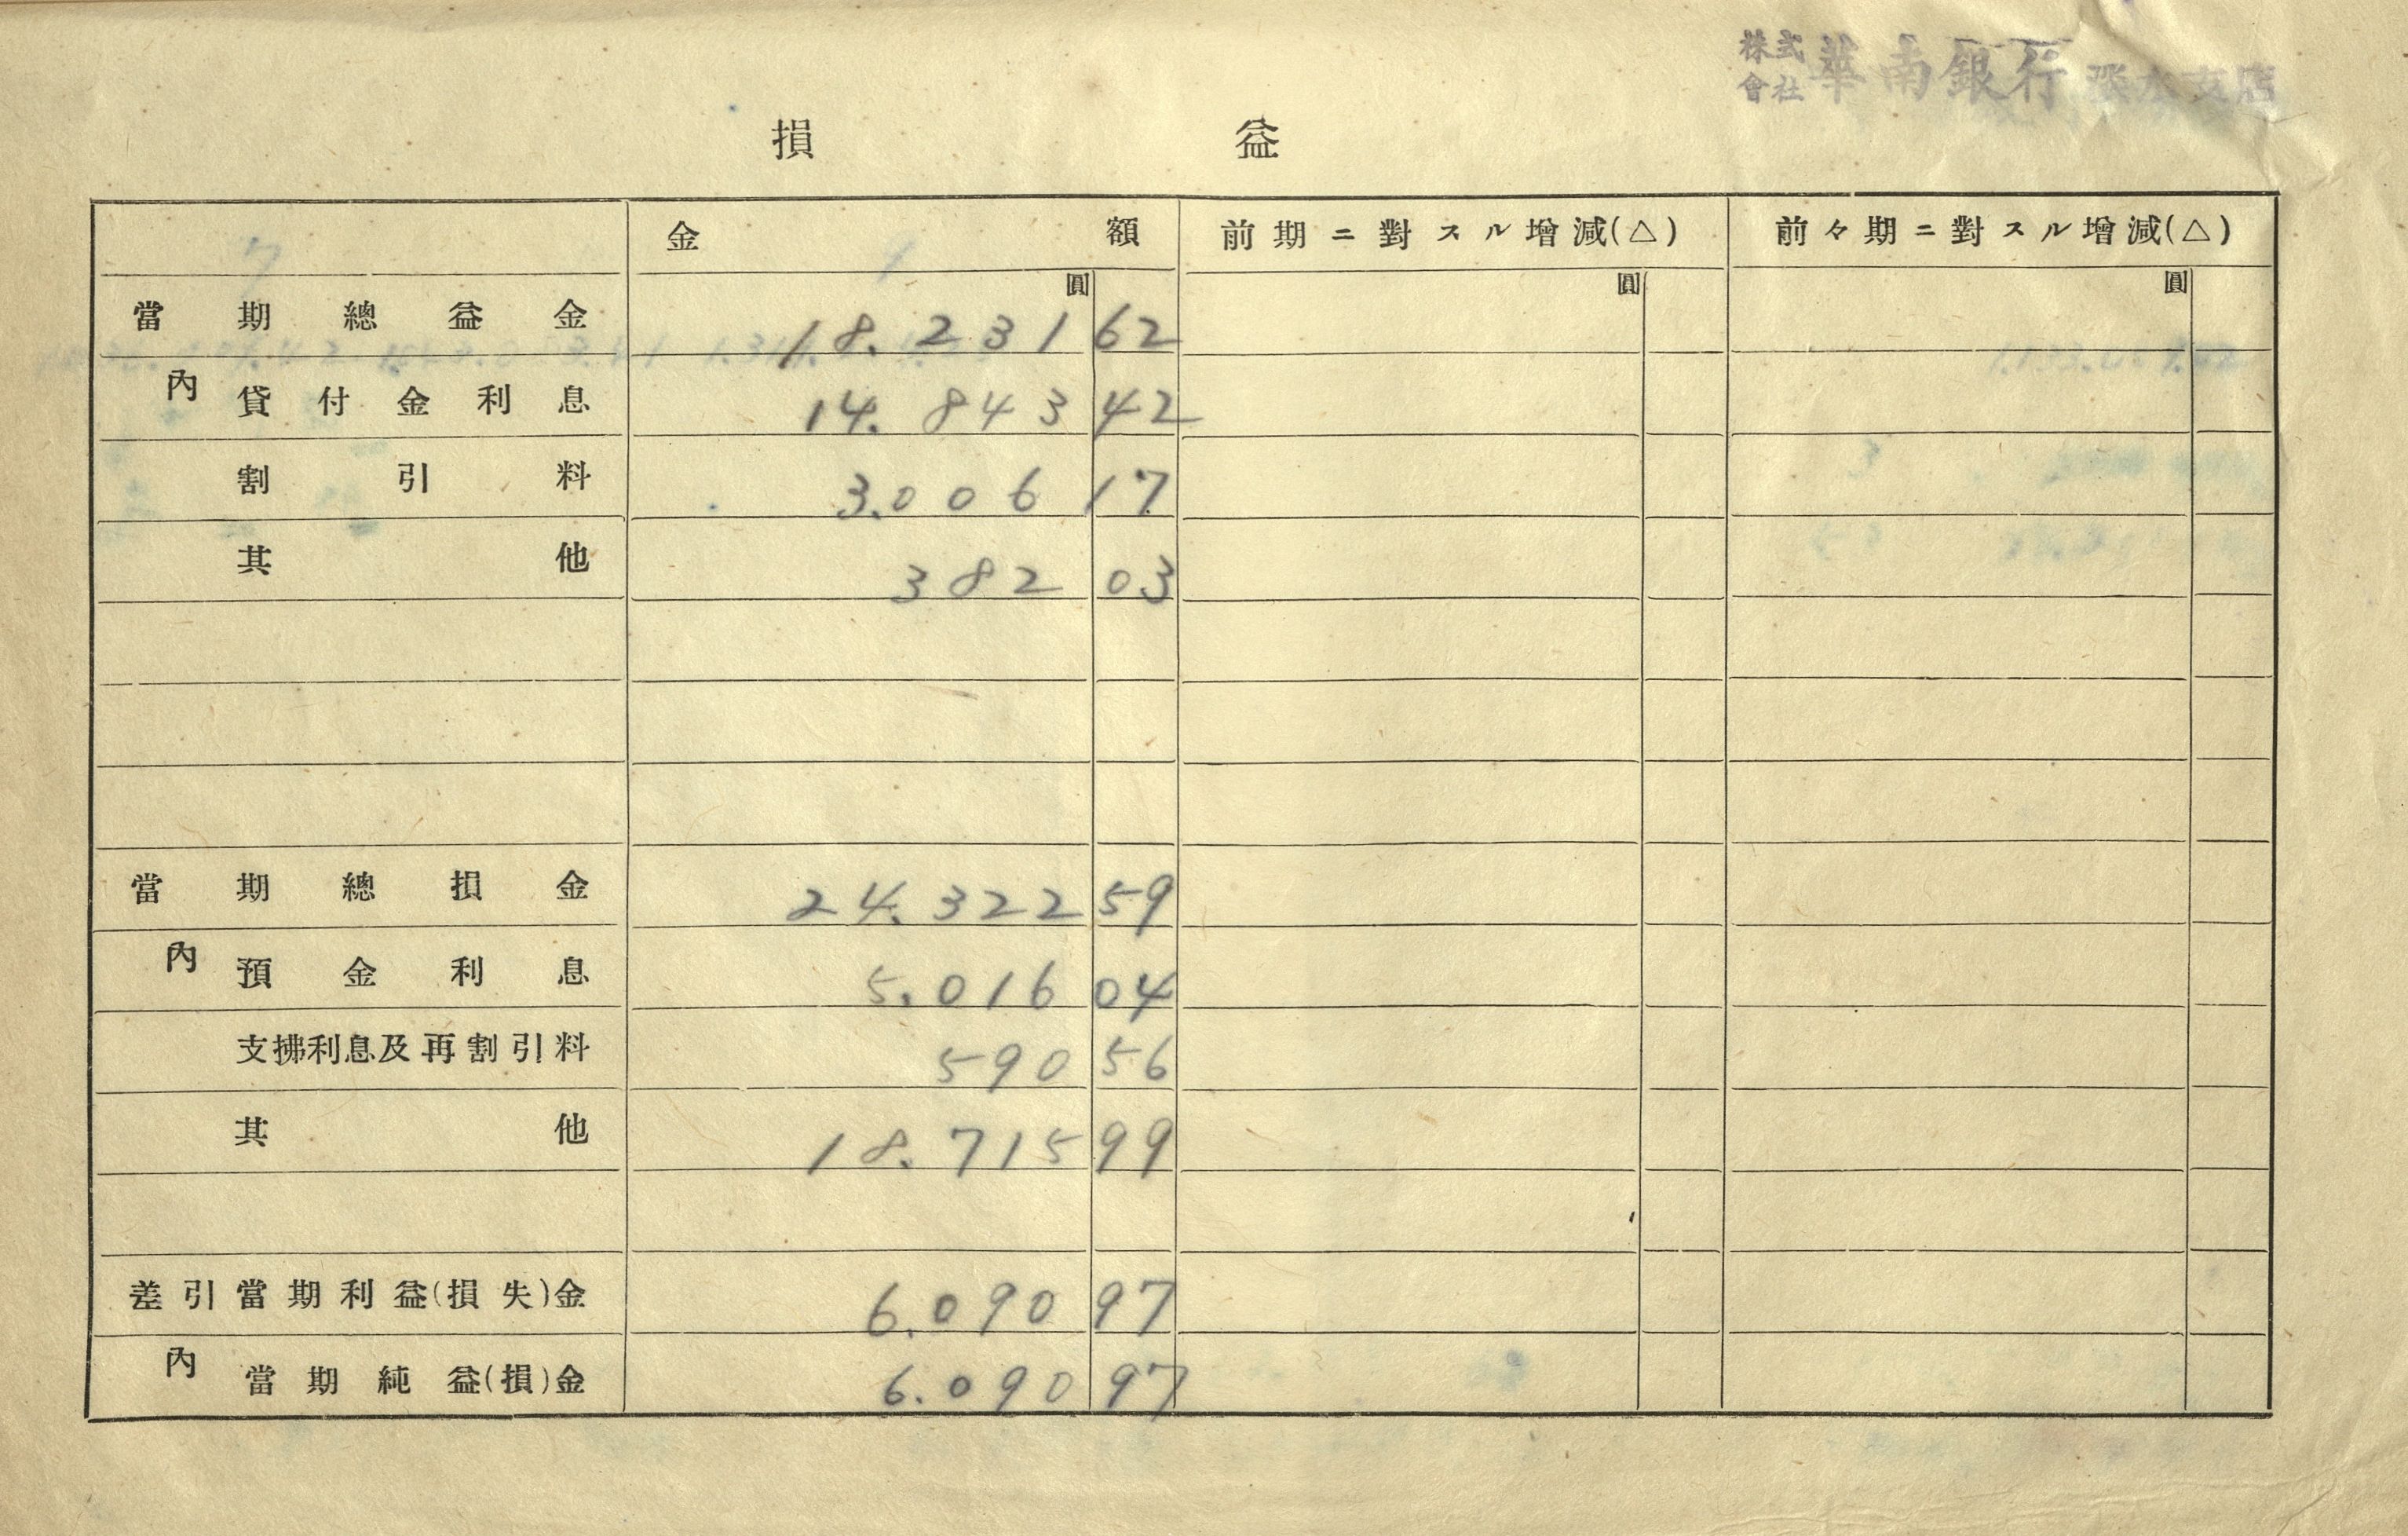 株式會社 華南銀行 淡水支店
損益
金額 前期ニ對スル增減(△) 前々期ニ對スル增減(△)
圓 圓 圓
當期總益金 18.231 62
內 貸付金利息 14.843 42
割引料 3.006 17
其他 382 03
當期總損金 24.322 59
內 預金利息 5.016 04
支拂利息及再割引料 590 56
其他 18.715 99
差引當期利益(損失)金 6.090 97
內 當期純益(損)金 6.090 97